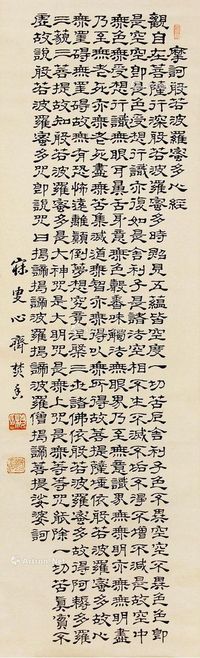 摩訶般若波羅蜜多心經
觀自在菩薩行深般若波羅蜜多時照見五蘊皆空度一切苦厄舍利子色不異空空不異色色即
是空空即是色受想行識亦復如是舍利子是諸法空相不生不滅不垢不淨不增不減是故空中
無色無受想行識無眼耳鼻舌身意無色聲香味觸法無眼界乃至無意識界無無明亦無無明盡
乃至無老死亦無老死盡無苦集滅道無智亦無得以無所得故菩提薩埵依般若波羅蜜多故心
無罣礙無罣礙故無有恐怖遠離顛倒夢想究竟涅槃三世諸佛依般若波羅蜜多故得阿耨多羅
三藐三菩提故知般若波羅蜜多是大神咒是大明咒是無上咒是無等等咒能除一切苦真實不
虛故說般若波羅蜜多咒即說咒曰揭諦揭諦波羅揭諦波羅僧揭諦菩提娑婆訶
寐叟心齋焚香